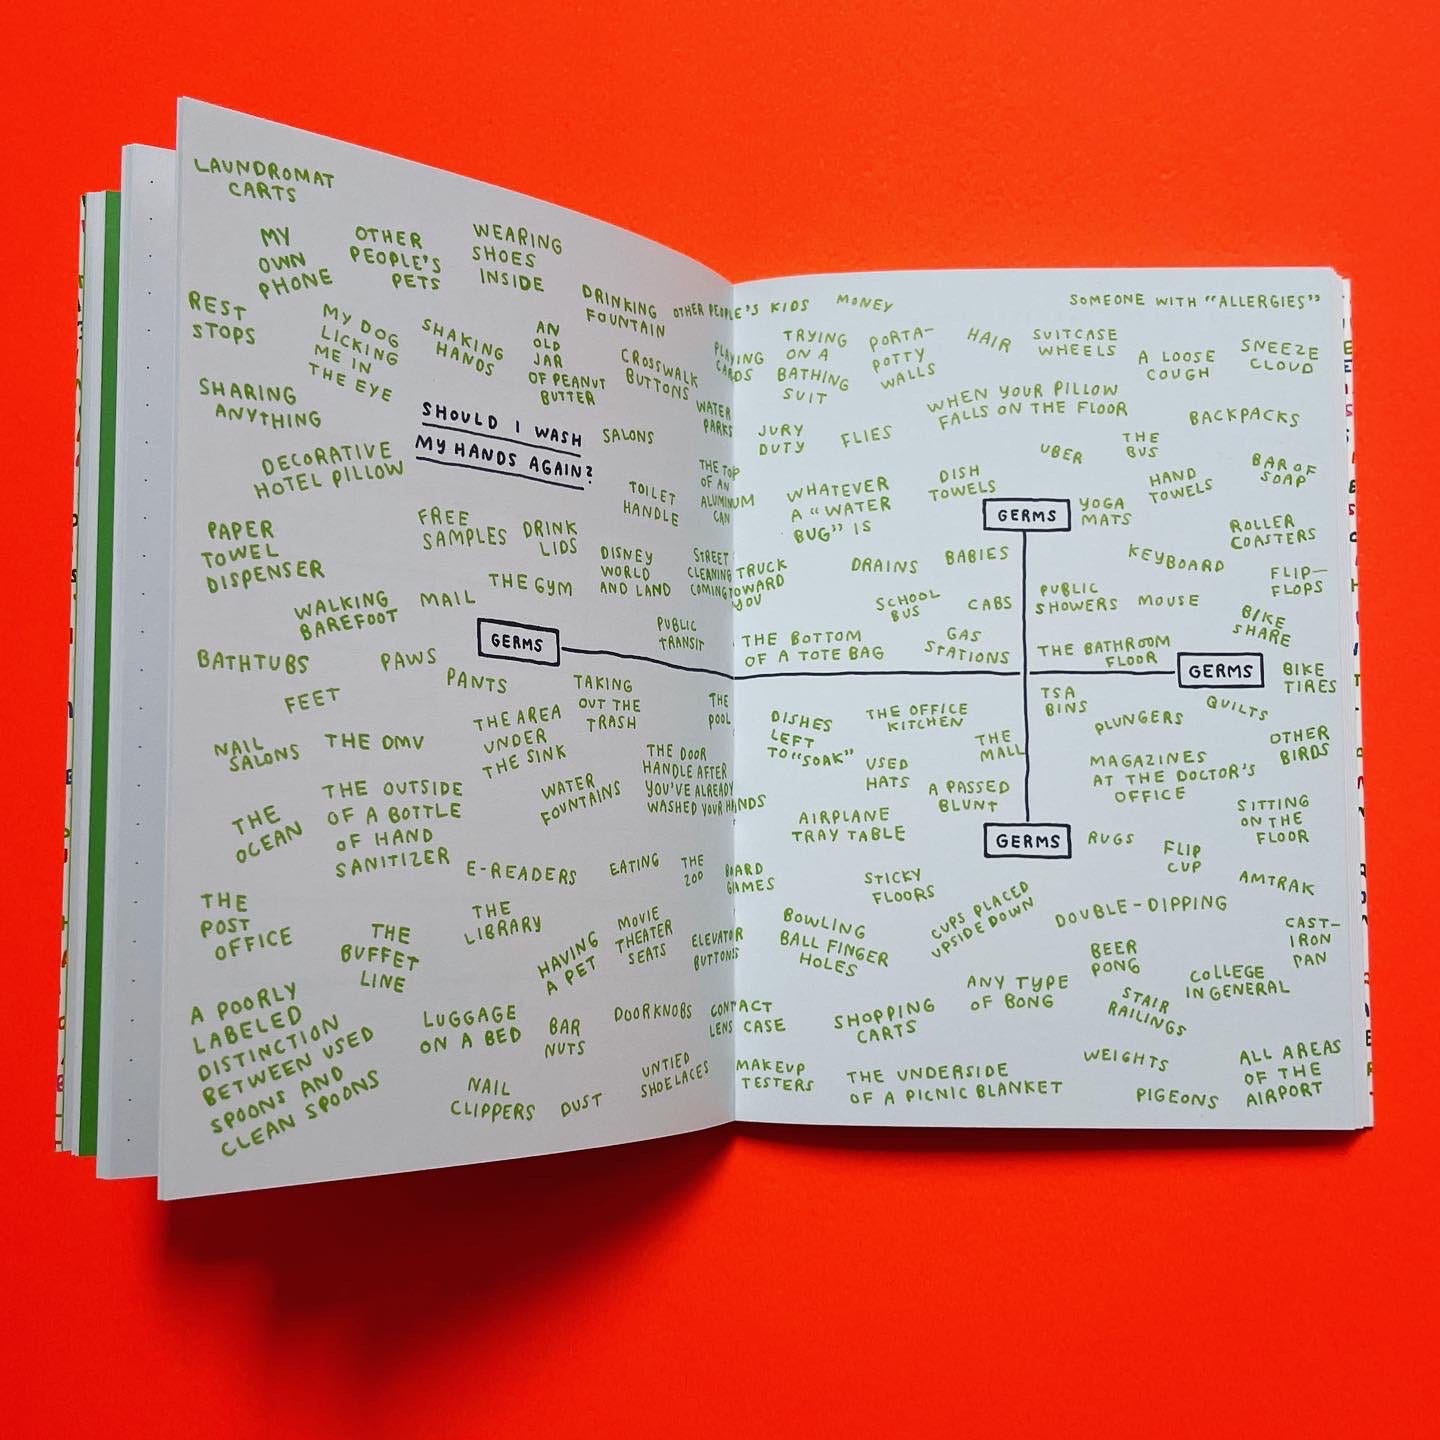 LAUNDROMAT
CARTS
MY
OWN
PHONE
OTHER
PEOPLE'S
PETS
WEARING
SHOES
INSIDE
DRINKING
FOUNTAIN
OTHER PEOPLE'S KIDS
MONEY
SOMEONE WITH "ALLERGIES"
REST
STOPS
MY DOG
LICKING
ME IN
THE EYE
SHAKING
HANDS
AN
OLD
JAR
OF PEANUT
BUTTER
CROSSWALK
BUTTONS
PLAYING
CARDS
TRYING
ON A
BATHING
SUIT
PORTA-
POTTY
WALLS
HAIR
SUITCASE
WHEELS
A LOOSE
COUGH
SNEEZE
CLOUD
SHARING
ANYTHING
SHOULD I WASH
MY HANDS AGAIN?
SALONS
WATER
PARKS
JURY
DUTY
FLIES
WHEN YOUR PILLOW
FALLS ON THE FLOOR
BACKPACKS
DECORATIVE
HOTEL PILLOW
TOILET
HANDLE
THE TOP
OF AN
ALUMINUM
CAN
WHATEVER
A "WATER
BUG" IS
DISH
TOWELS
UBER
THE
BUS
HAND
TOWELS
BAR OF
SOAP
GERMS
YOGA
MATS
PAPER
TOWEL
DISPENSER
FREE
SAMPLES
DRINK
LIDS
DISNEY
WORLD
AND LAND
STREET
CLEANING TRUCK
COMING TOWARD
YOU
DRAINS
BABIES
KEYBOARD
ROLLER
COASTERS
FLIP-
FLOPS
WALKING
BAREFOOT
MAIL
THE GYM
SCHOOL
BUS
CABS
PUBLIC
SHOWERS
MOUSE
BIKE
SHARE
GERMS
PUBLIC
TRANSIT
THE BOTTOM
OF A TOTE BAG
GAS
STATIONS
THE BATHROOM
FLOOR
GERMS
BIKE
TIRES
BATHTUBS
PAWS
PANTS
FEET
TAKING
OUT THE
TRASH
THE
POOL
DISHES
LEFT
TO "SOAK"
THE OFFICE
KITCHEN
TSA
BINS
PLUNGERS
QUILTS
NAIL
SALONS
THE DMV
THE AREA
UNDER
THE SINK
THE DOOR
HANDLE AFTER
YOU'VE ALREADY
WASHED YOUR HANDS
USED
HATS
THE
MALL
MAGAZINES
AT THE DOCTOR'S
OFFICE
OTHER
BIRDS
THE
OCEAN
THE OUTSIDE
OF A BOTTLE
OF HAND
SANITIZER
WATER
FOUNTAINS
AIRPLANE
TRAY TABLE
A PASSED
BLUNT
SITTING
ON THE
FLOOR
GERMS
RUGS
FLIP
CUP
E-READERS
EATING
THE
ZOO
BOARD
GAMES
STICKY
FLOORS
AMTRAK
THE
POST
OFFICE
THE
BUFFET
LINE
THE
LIBRARY
HAVING
A PET
MOVIE
THEATER
SEATS
ELEVATOR
BUTTONS
BOWLING
BALL FINGER
HOLES
CUPS PLACED
UPSIDE DOWN
DOUBLE-DIPPING
BEER
PONG
CAST-
IRON
PAN
A POORLY
LABELED
DISTINCTION
BETWEEN USED
SPOONS AND
CLEAN SPOONS
LUGGAGE
ON A BED
BAR
NUTS
DOORKNOBS
CONTACT
LENS CASE
SHOPPING
CARTS
ANY TYPE
OF BONG
STAIR
RAILINGS
COLLEGE
IN GENERAL
NAIL
CLIPPERS
DUST
UNTIED
SHOELACES
MAKEUP
TESTERS
THE UNDERSIDE
OF A PICNIC BLANKET
WEIGHTS
PIGEONS
ALL AREAS
OF THE
AIRPORT